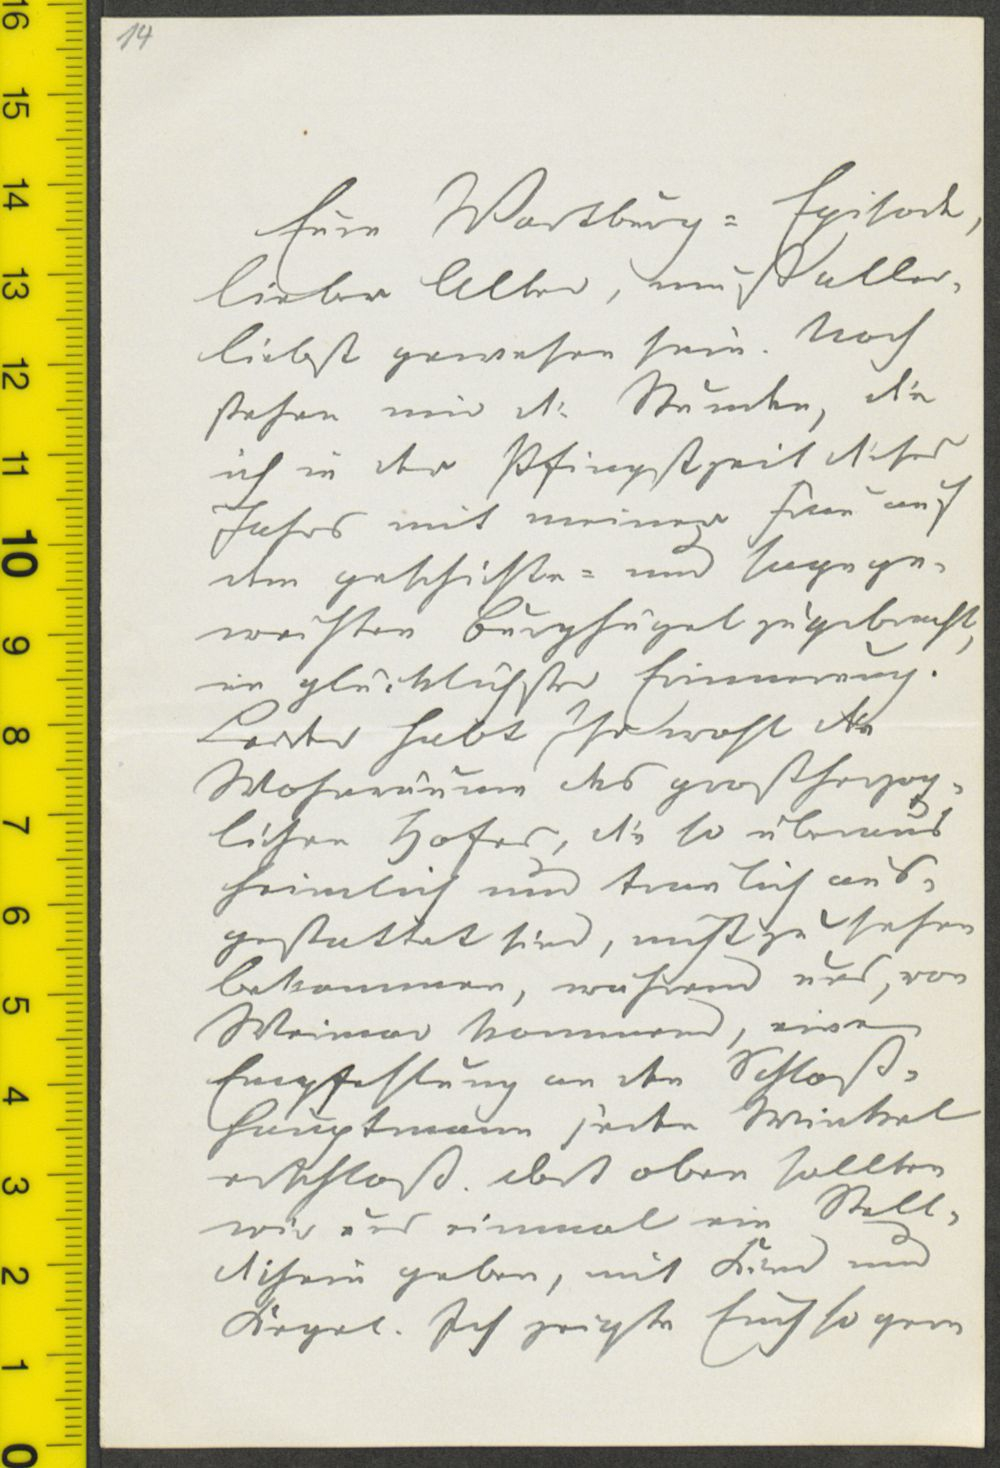 14
Eure Wartburg = Episode,
lieber Alter, muß aller-
liebst gewesen sein. Noch
stehen mir die Stunden, die
ich in der Pfingstzeit dieses
Jahres mit meiner Frau auf
dem geschichts= und sagege-
weihten Burghügel zugebracht,
in glücklichster Erinnerung.
Leider habt Ihr wohl die
Wohnräume des großherzog-
lichen Hofes, die so überaus
heimlich und traulich aus-
gestattet sind, nicht zu sehen
bekommen, während uns, von
Weimar kommend, eine
Empfehlung an den Schloß-
hauptmann jeden Winkel
erschloß. Dort oben sollten
wir uns einmal ein Stell-
dichein geben, mit Kind und
Kegel. Ich zeigte Euch so gern
16
15
14
13
12
11
10
9
8
7
6
5
4
3
2
1
0